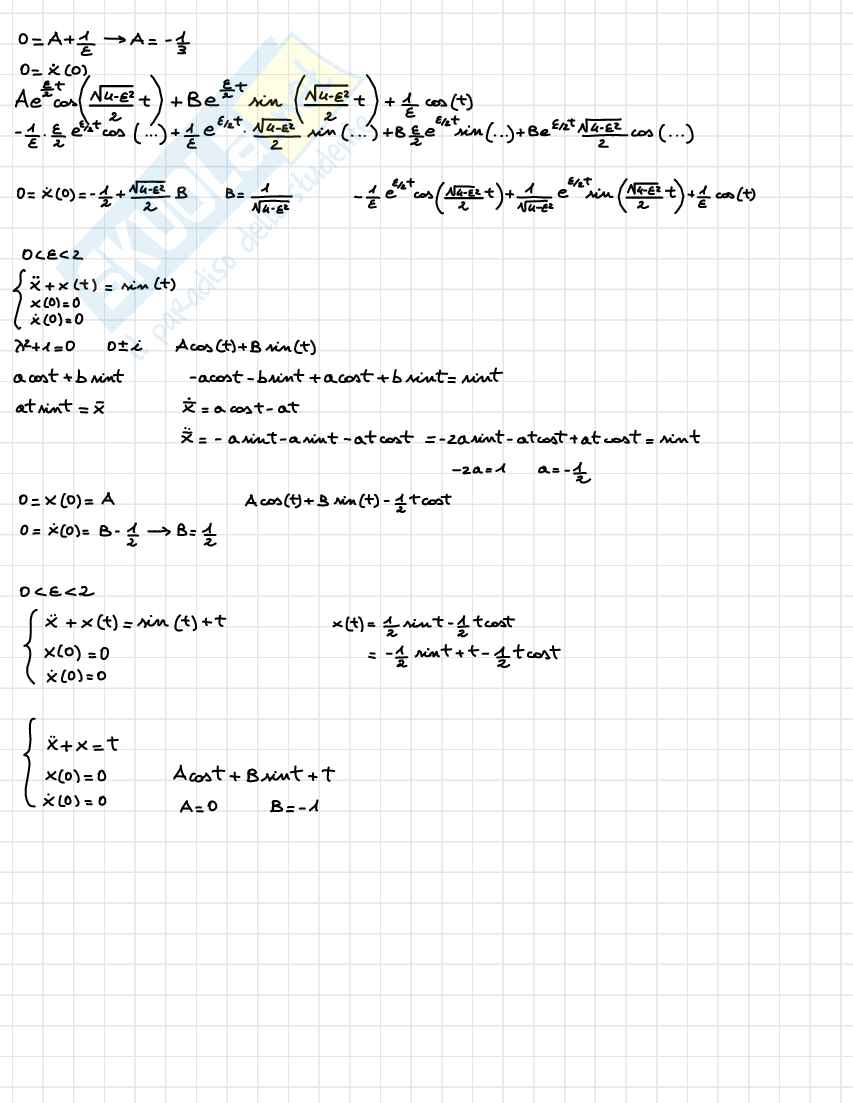 0 = A + 1/ε → A = -1/3
0 = ẋ(0)
Ae^{ε/2 t} cos(√(4-ε²)/2 t) + Be^{ε/2 t} sin(√(4-ε²)/2 t) + 1/ε cos(t)
-1/ε · ε/2 e^{ε/2 t} cos(...) + 1/ε e^{ε/2 t} · √(4-ε²)/2 sin(...) + B ε/2 e^{ε/2 t} sin(..) + Be^{ε/2 t} √(4-ε²)/2 cos(...)
0 = ẋ(0) = -1/2 + √(4-ε²)/2 B    B = 1/√(4-ε²)    -1/ε e^{ε/2 t} cos(√(4-ε²)/2 t) + 1/√(4-ε²) e^{ε/2 t} sin(√(4-ε²)/2 t) + 1/ε cos(t)
0<ε<2
{ ẍ + x(t) = sin(t)
x(0)=0
ẋ(0)=0
λ²+1=0    0±i    Acos(t)+Bsin(t)
acost + bsint    -acost - bsint + acost + bsint = sint
atsint = x̄    ẋ̄ = acost - at
ẍ̄ = -asint - asint - atcost = -2asint - atcost + atcost = sint
-2a=1    a=-1/2
0 = x(0) = A    Acos(t) + Bsin(t) - 1/2 tcost
0 = ẋ(0) = B - 1/2 → B = 1/2
0<ε<2
{ ẍ + x(t) = sin(t) + t    x(t) = 1/2 sint - 1/2 tcost
x(0) = 0    = -1/2 sint + t - 1/2 tcost
ẋ(0) = 0
{ ẍ + x = t
x(0) = 0    Acost + Bsint + t
ẋ(0) = 0    A=0    B=-1
SKUOLA.net
il paradiso dello studente